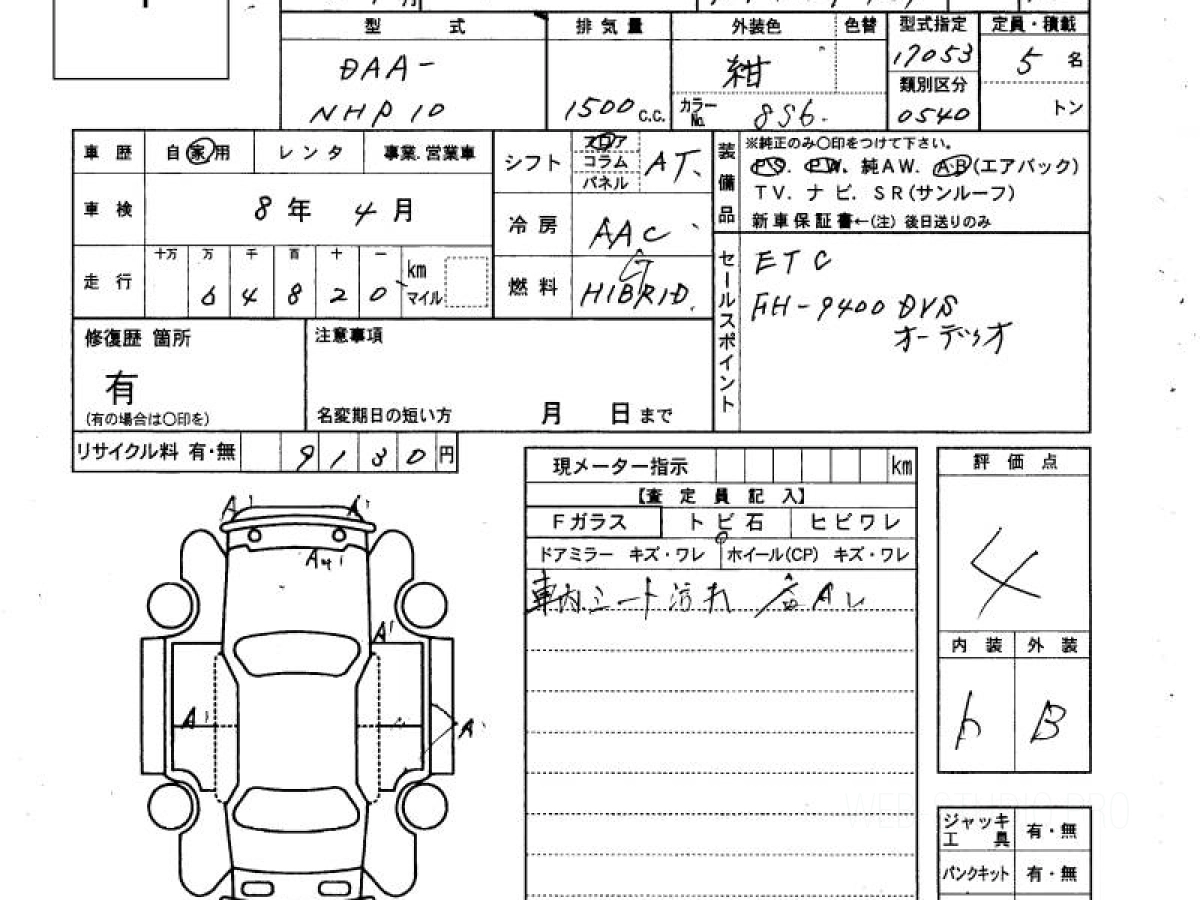 型 式 排気量 外装色 色替 型式指定 定員・積載
DAA-
NHP10
1500 c.c.
紺
カラーNo. 8S6.
17053
類別区分
0540
5 名
トン
車歴 自家用 レンタ 事業.営業車
車検 8年 4月
走行 十万 万 千 百 十 一
6 4 8 2 0 km マイル
シフト フロア コラム パネル AT.
冷房 AAC
燃料 HIBRID.
装備品
※純正のみ〇印をつけて下さい。
PS. PW. 純AW. AB(エアバック)
TV. ナビ. SR(サンルーフ)
新車保証書←(注) 後日送りのみ
セールスポイント
ETC
FH-9400 DVD
オーディオ
修復歴 箇所
有
(有の場合は〇印を)
注意事項
名変期日の短い方 月 日まで
リサイクル料 有・無 9130 円
現メーター指示 km
【査定員記入】
Fガラス トビ石 ヒビワレ
ドアミラー キズ・ワレ ホイール(CP) キズ・ワレ
車内シート汚れ
評価点
4
内装 外装
b B
A1
A1
A1
A1
ジャッキ工具 有・無
パンクキット 有・無
WEB STUDIO PRO